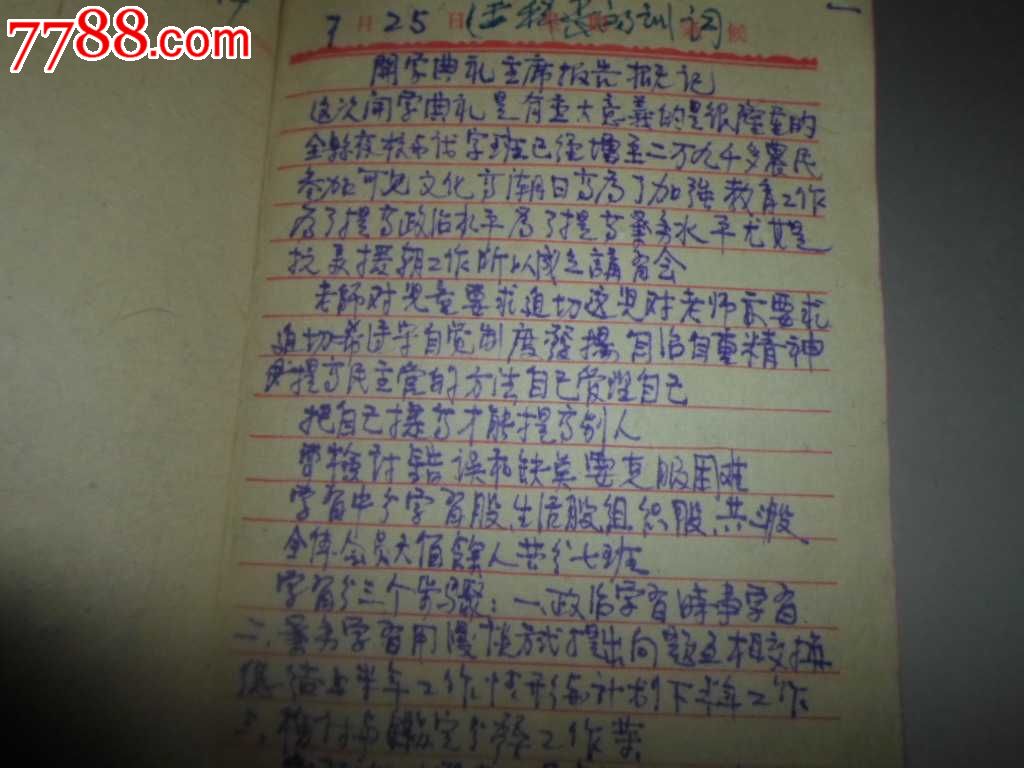 7788.com
7月25日(王科長的訓词) 候
開学典礼主席报告概记
这次開学典礼是有重大意義的是很隆重的
全縣夜校与识字班已經增至二万九千多農民
参加可見文化高潮日高為了加強教育工作
為了提高政治水平為了提高業务水平尤其是
抗美援朝工作所以成立講習会
老師对児童要求迫切 児对老师亦要求
迫切希 守自觉制度發揚自治自重精神
提高民主党的方法自己管理自己
把自己提高才能提高别人
检討错误和缺点要克服困难
学習中分学習股、生活股、組织股、共 股
全体会员六佰餘人共分七班
学習分三个步骤：一、政治学習時事学習
二、業务学習用漫谈方式提出问题互相交換
總结上半年工作情形 计划下半年工作
三、检讨与鑑定 工作